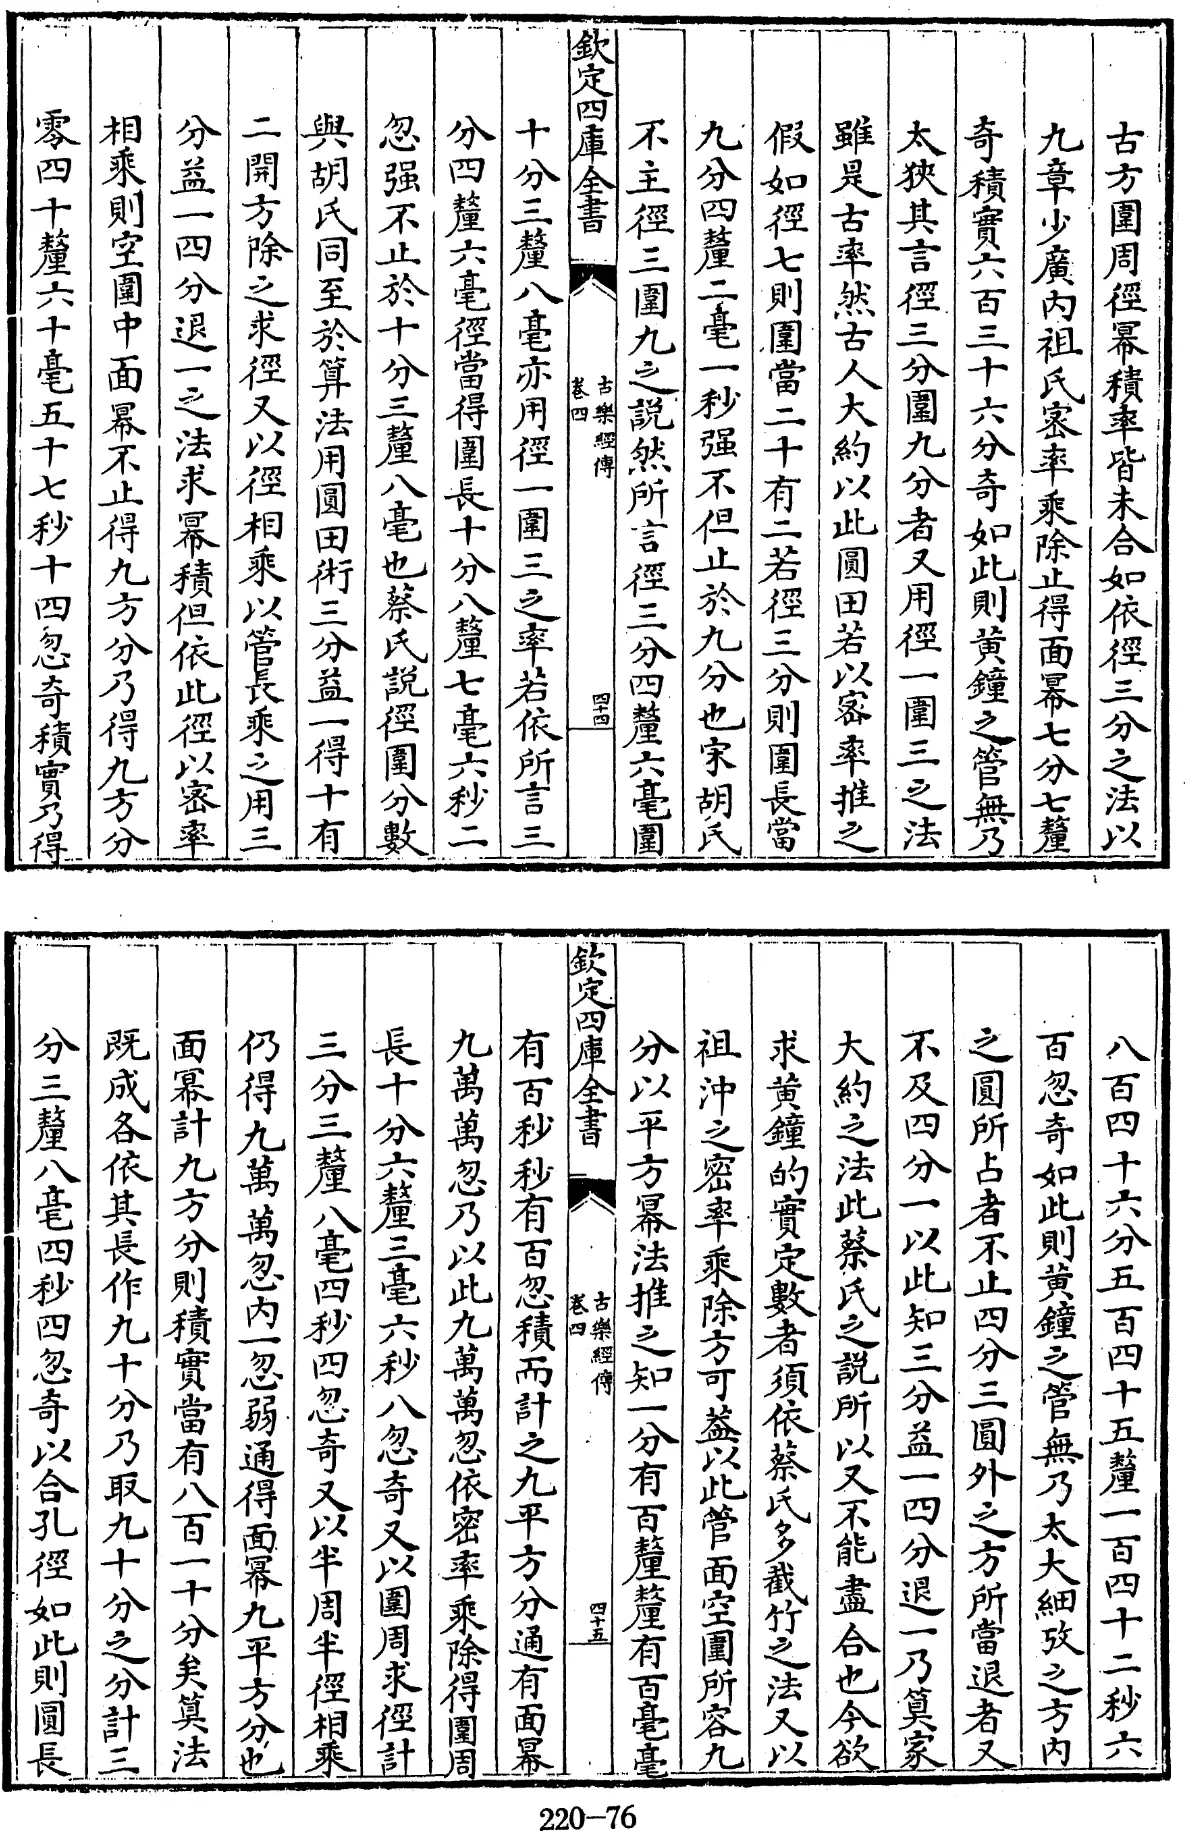 古方圍周徑冪積率皆未合如依徑三分之法以
九章少廣内祖氏密率乘除止得面冪七分七釐
奇積實六百三十六分奇如此則黄鐘之管無乃
太狹其言徑三分圍九分者又用徑一圍三之法
雖是古率然古人大約以此圓田若以密率推之
假如徑七則圍當二十有二若徑三分則圍長當
九分四釐二毫一秒强不但止於九分也宋胡氏
不主徑三圍九之説然所言徑三分四釐六毫圍
欽定四庫全書
古樂經傳
卷四
四十四
十分三釐八毫亦用徑一圍三之率若依所言三
分四釐六毫徑當得圍長十分八釐七毫六秒二
忽强不止於十分三釐八毫也蔡氏説徑圍分數
與胡氏同至於算法用圓田術三分益一得十有
二開方除之求徑又以徑相乘以管長乘之用三
分益一四分退一之法求冪積但依此徑以密率
相乘則空圍中面冪不止得九方分乃得九方分
零四十釐六十毫五十七秒十四忽奇積實乃得
八百四十六分五百四十五釐一百四十二秒六
百忽奇如此則黄鐘之管無乃太大細攷之方内
之圓所占者不止四分三圓外之方所當退者又
不及四分一以此知三分益一四分退一乃算家
大約之法此蔡氏之説所以又不能盡合也今欲
求黄鐘的實定數者須依蔡氏多截竹之法又以
祖沖之密率乘除方可葢以此管面空圍所容九
分以平方冪法推之知一分有百釐釐有百毫毫
欽定四庫全書
古樂經傳
卷四
四十五
有百秒秒有百忽積而計之九平方分通有面冪
九萬萬忽乃以此九萬萬忽依密率乘除得圍周
長十分六釐三毫六秒八忽奇又以圍周求徑計
三分三釐八毫四秒四忽奇又以半周半徑相乘
仍得九萬萬忽内一忽弱通得面冪九平方分也
面冪計九方分則積實當有八百一十分矣算法
既成各依其長作九十分乃取九十分之分計三
分三釐八毫四秒四忽奇以合孔徑如此則圓長
220-76